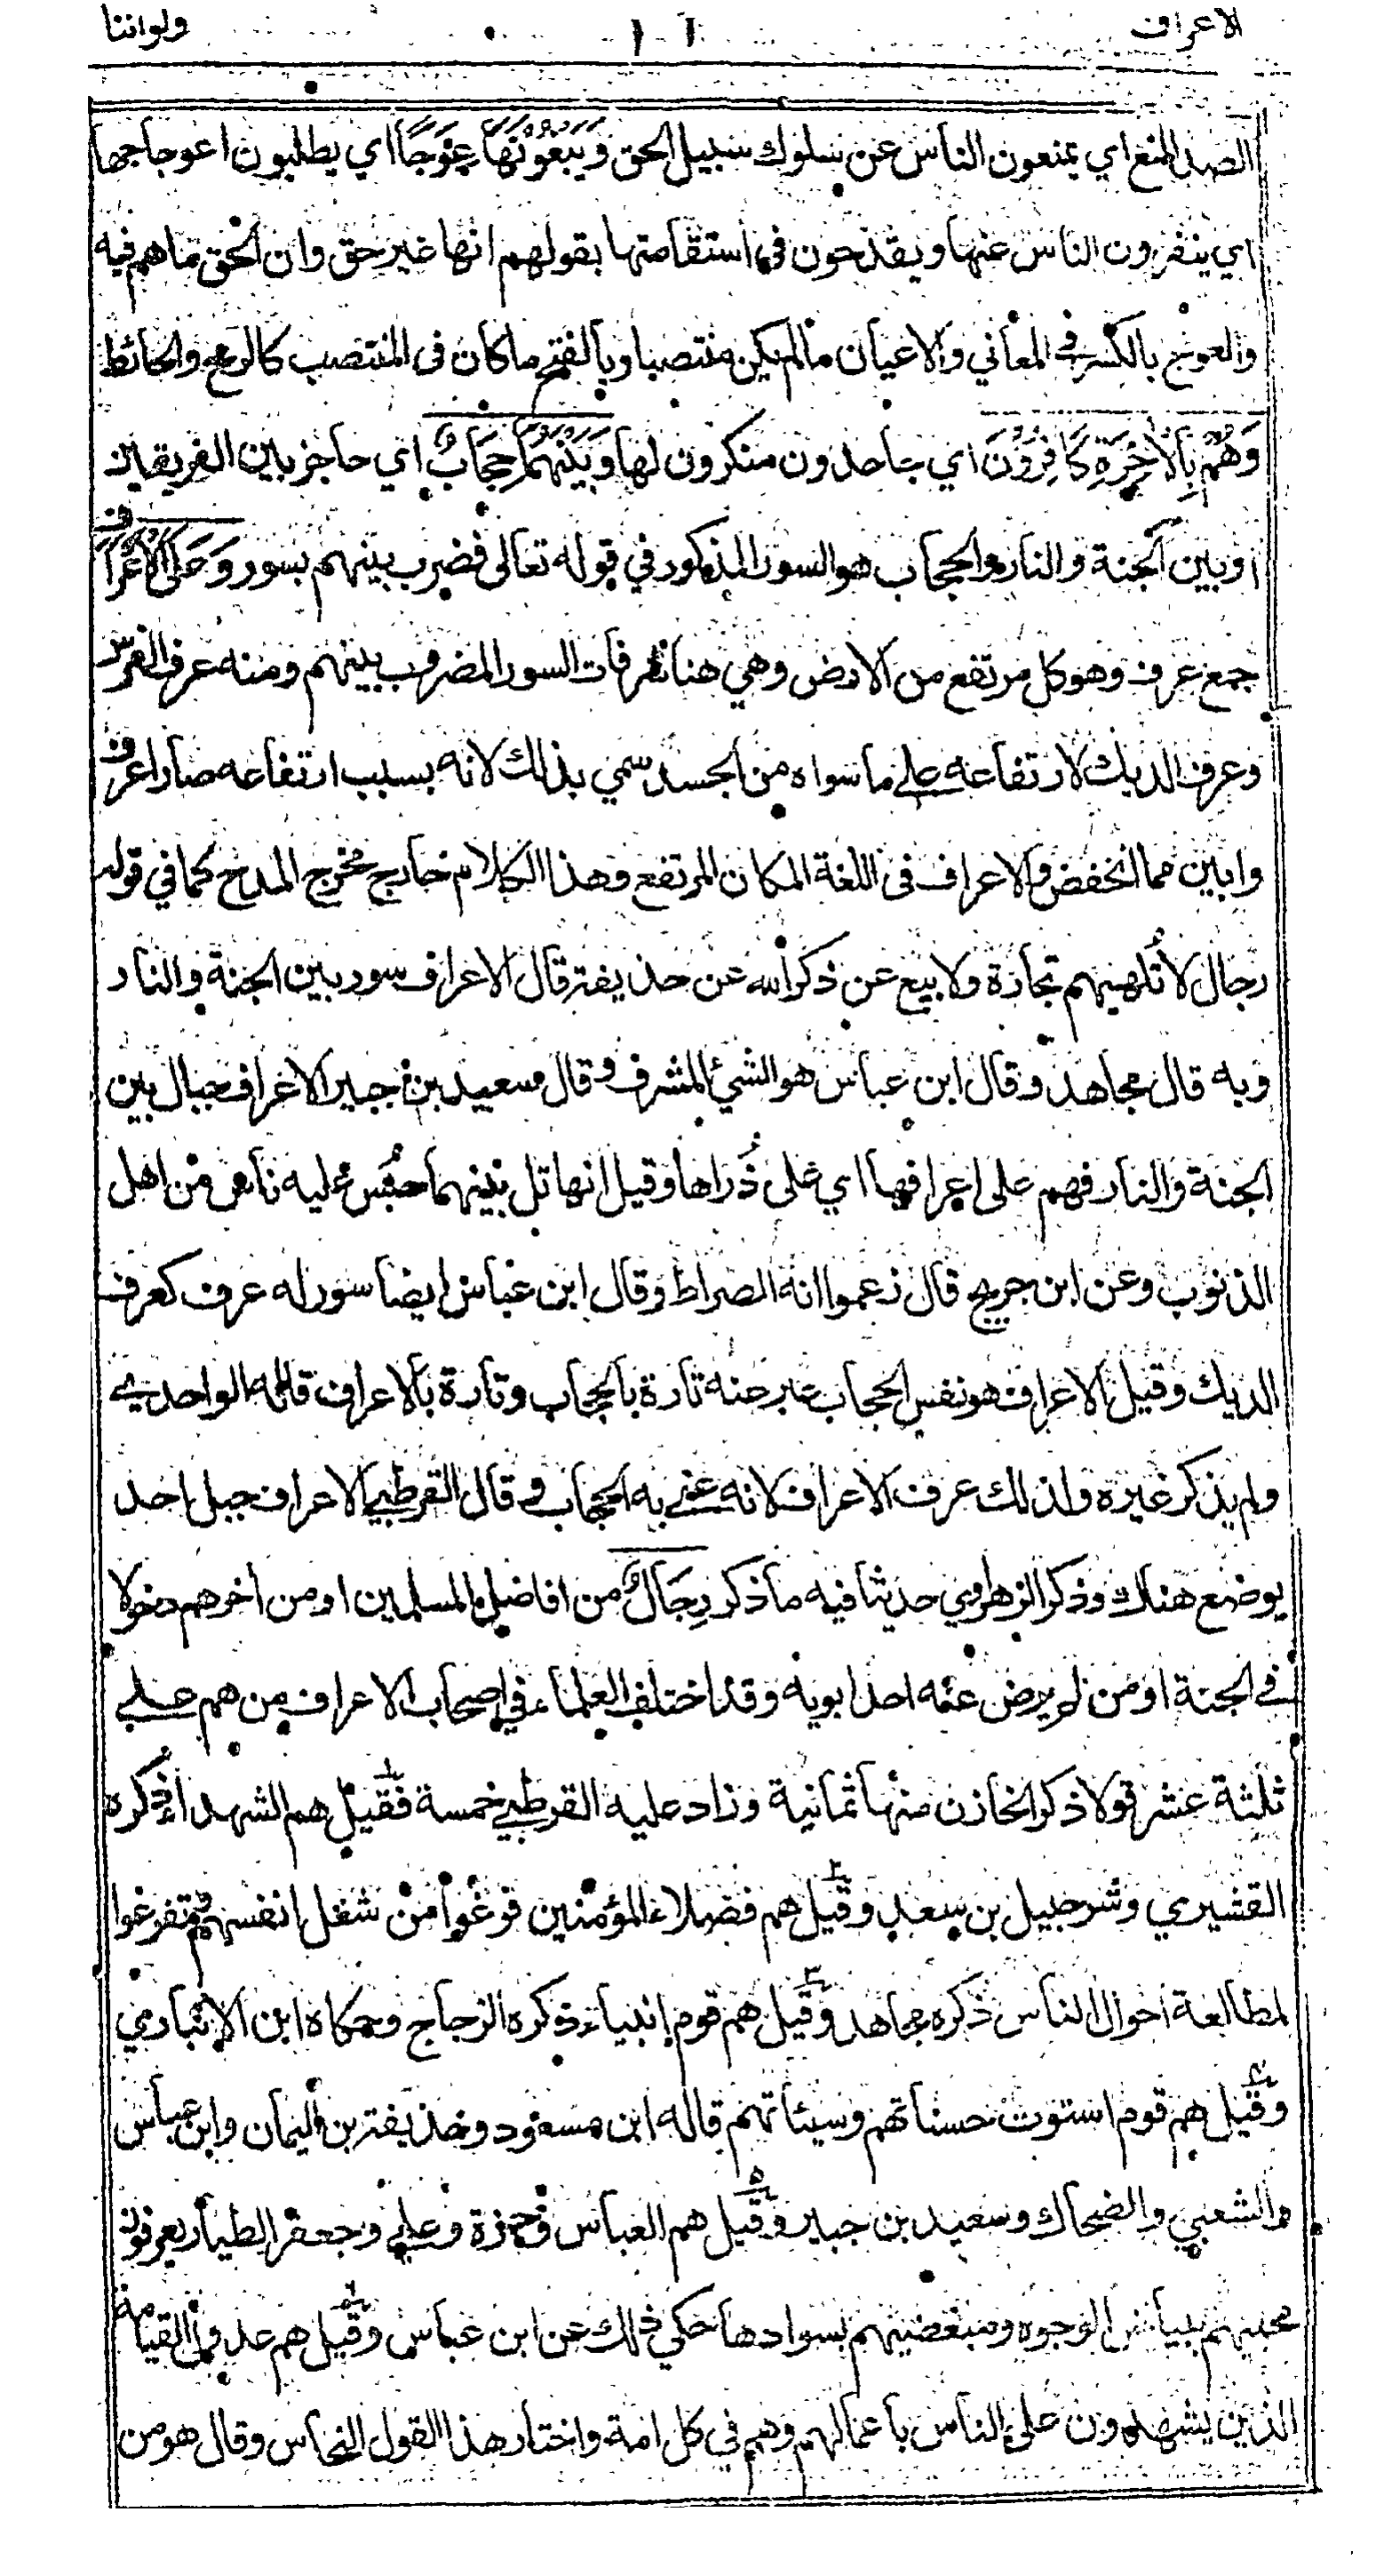 الاعراف ١٠١ ولواننا
الصد المنع اي يمنعون الناس عن سلوك سبيل الحق وَيَبْغُونَهَا عِوَجًا اي يطلبون اعوجاجها
اي ينفرون الناس عنها ويقدحون في استقامتها بقولهم انها غير حق وان الحق ما هم فيه
والعوج بالكسر في المعاني والاعيان ما لم يكن منتصبا وبالفتح ما كان في المنتصب كالرمح والحائط
وَهُمْ بِالْآخِرَةِ كَافِرُوْنَ اي جاحدون منكرون لها وَبَيْنَهُمَا حِجَابٌ اي حاجز بين الفريقين
او بين الجنة والنار والحجاب هو السور المذكور في قوله تعالى فضرب بينهم بسور وَعَلَى الْاَعْرَافِ
جمع عرف وهو كل مرتفع من الارض وهي هنا شرفات السور المضروب بينهم ومنه عرف الفرس
وعرف الديك لارتفاعه على ما سواه من الجسد سمي بذلك لانه بسبب ارتفاعه صار اعرف
وابين مما انخفض والاعراف في اللغة المكان المرتفع وهذا الكلام خارج مخرج المدح كما في قوله
رجال لا تلهيهم تجارة ولا بيع عن ذكر الله عن حذيفة قال الاعراف سور بين الجنة والنار
وبه قال مجاهد وقال ابن عباس هو الشيء المشرف وقال سعيد بن جبير الاعراف جبال بين
الجنة والنار فهم على اعرافها اي على ذُراها وقيل انها تل بينهما حُبس عليه ناس من اهل
الذنوب وعن ابن جريج قال زعموا انه الصراط وقال ابن عباس ايضا سور له عرف كعرف
الديك وقيل الاعراف هو نفس الحجاب عبر عنه تارة بالحجاب وتارة بالاعراف قاله الواحدي
ولم يذكر غيره ولذلك عرف الاعراف لانه عني به الحجاب وقال القرطبي الاعراف جبل احد
يوضع هناك وذكر الزهراوي حديثا فيه ما ذكر رِجَالٌ من افاضل المسلمين او من اخرهم دخولا
في الجنة او من لم يرض عنه احد ابويه وقد اختلف العلماء في اصحاب الاعراف من هم على
ثلثة عشر قولا ذكر الخازن منها ثمانية وزاد عليه القرطبي خمسة فقيل هم الشهداء ذكره
القشيري وشرحبيل بن سعد وقيل هم فضلاء المؤمنين فرغوا من شغل انفسهم وتفرغوا
لمطالعة احوال الناس ذكره مجاهد وقيل هم قوم انبياء ذكره الزجاج وحكاه ابن الانباري
وقيل هم قوم استوت حسناتهم وسيئاتهم قاله ابن مسعود وحذيفة بن اليمان وابن عباس
والشعبي والضحاك وسعيد بن جبير وقيل هم العباس وحمزة وعلي وجعفر الطيار يعرفون
محبيهم ببياض الوجوه ومبغضيهم بسوادها حكي ذلك عن ابن عباس وقيل هم عدول القيامة
الذين يشهدون على الناس باعمالهم وهم في كل امة واختار هذا القول النحاس وقال هو من